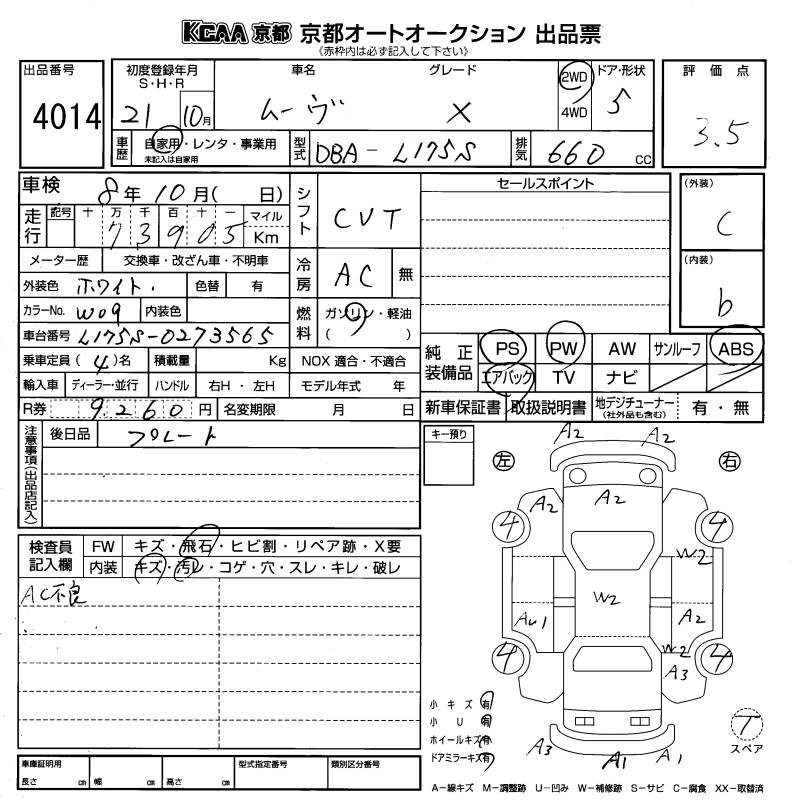 KCAA 京都 京都オートオークション 出品票
《赤枠内は必ず記入して下さい》
出品番号
4014
初度登録年月
S・H・R
21 10月
車名
ムーヴ
グレード
X
2WD
4WD
ドア・形状
5
評価点
3.5
車歴
自家用・レンタ・事業用
未記入は自家用
型式
DBA-L175S
排気
660 CC
車検
8年10月( 日)
走行
記号 十 万 千 百 十 一
73905
マイル
Km
メーター歴
交換車・改ざん車・不明車
外装色
ホワイト
色替
有
カラーNo.
W09
内装色
車台番号
L175S-0273565
乗車定員(4)名
積載量
Kg
輸入車
ディーラー・並行
ハンドル
右H・左H
R券
9260円
名変期限
月 日
シフト
CVT
冷房
AC
無
燃料
ガソリン・軽油
( )
NOX 適合・不適合
モデル年式 年
セールスポイント
(外装)
C
(内装)
b
純正装備品
PS PW AW サンルーフ ABS
エアバック TV ナビ
新車保証書 取扱説明書
地デジチューナー
(社外品も含む)
有・無
注意事項(出品店記入)
後日品
プレート
キー預り
検査員記入欄
FW
キズ・飛石・ヒビ割・リペア跡・X要
内装
キズ・汚レ・コゲ・穴・スレ・キレ・破レ
AC不良
左
右
A2 A2
A2 A2
4 4
W2
W2
AU1 A2
W2
4 4
A3
A3 A1 A1
小キズ 有
小U 有
ホイールキズ 有
ドアミラーキズ 有
T
スペア
車庫証明用
長さ cm 幅 cm 高さ cm
型式指定番号
類別区分番号
A-線キズ M-調整跡 U-凹み W-補修跡 S-サビ C-腐食 XX-取替済